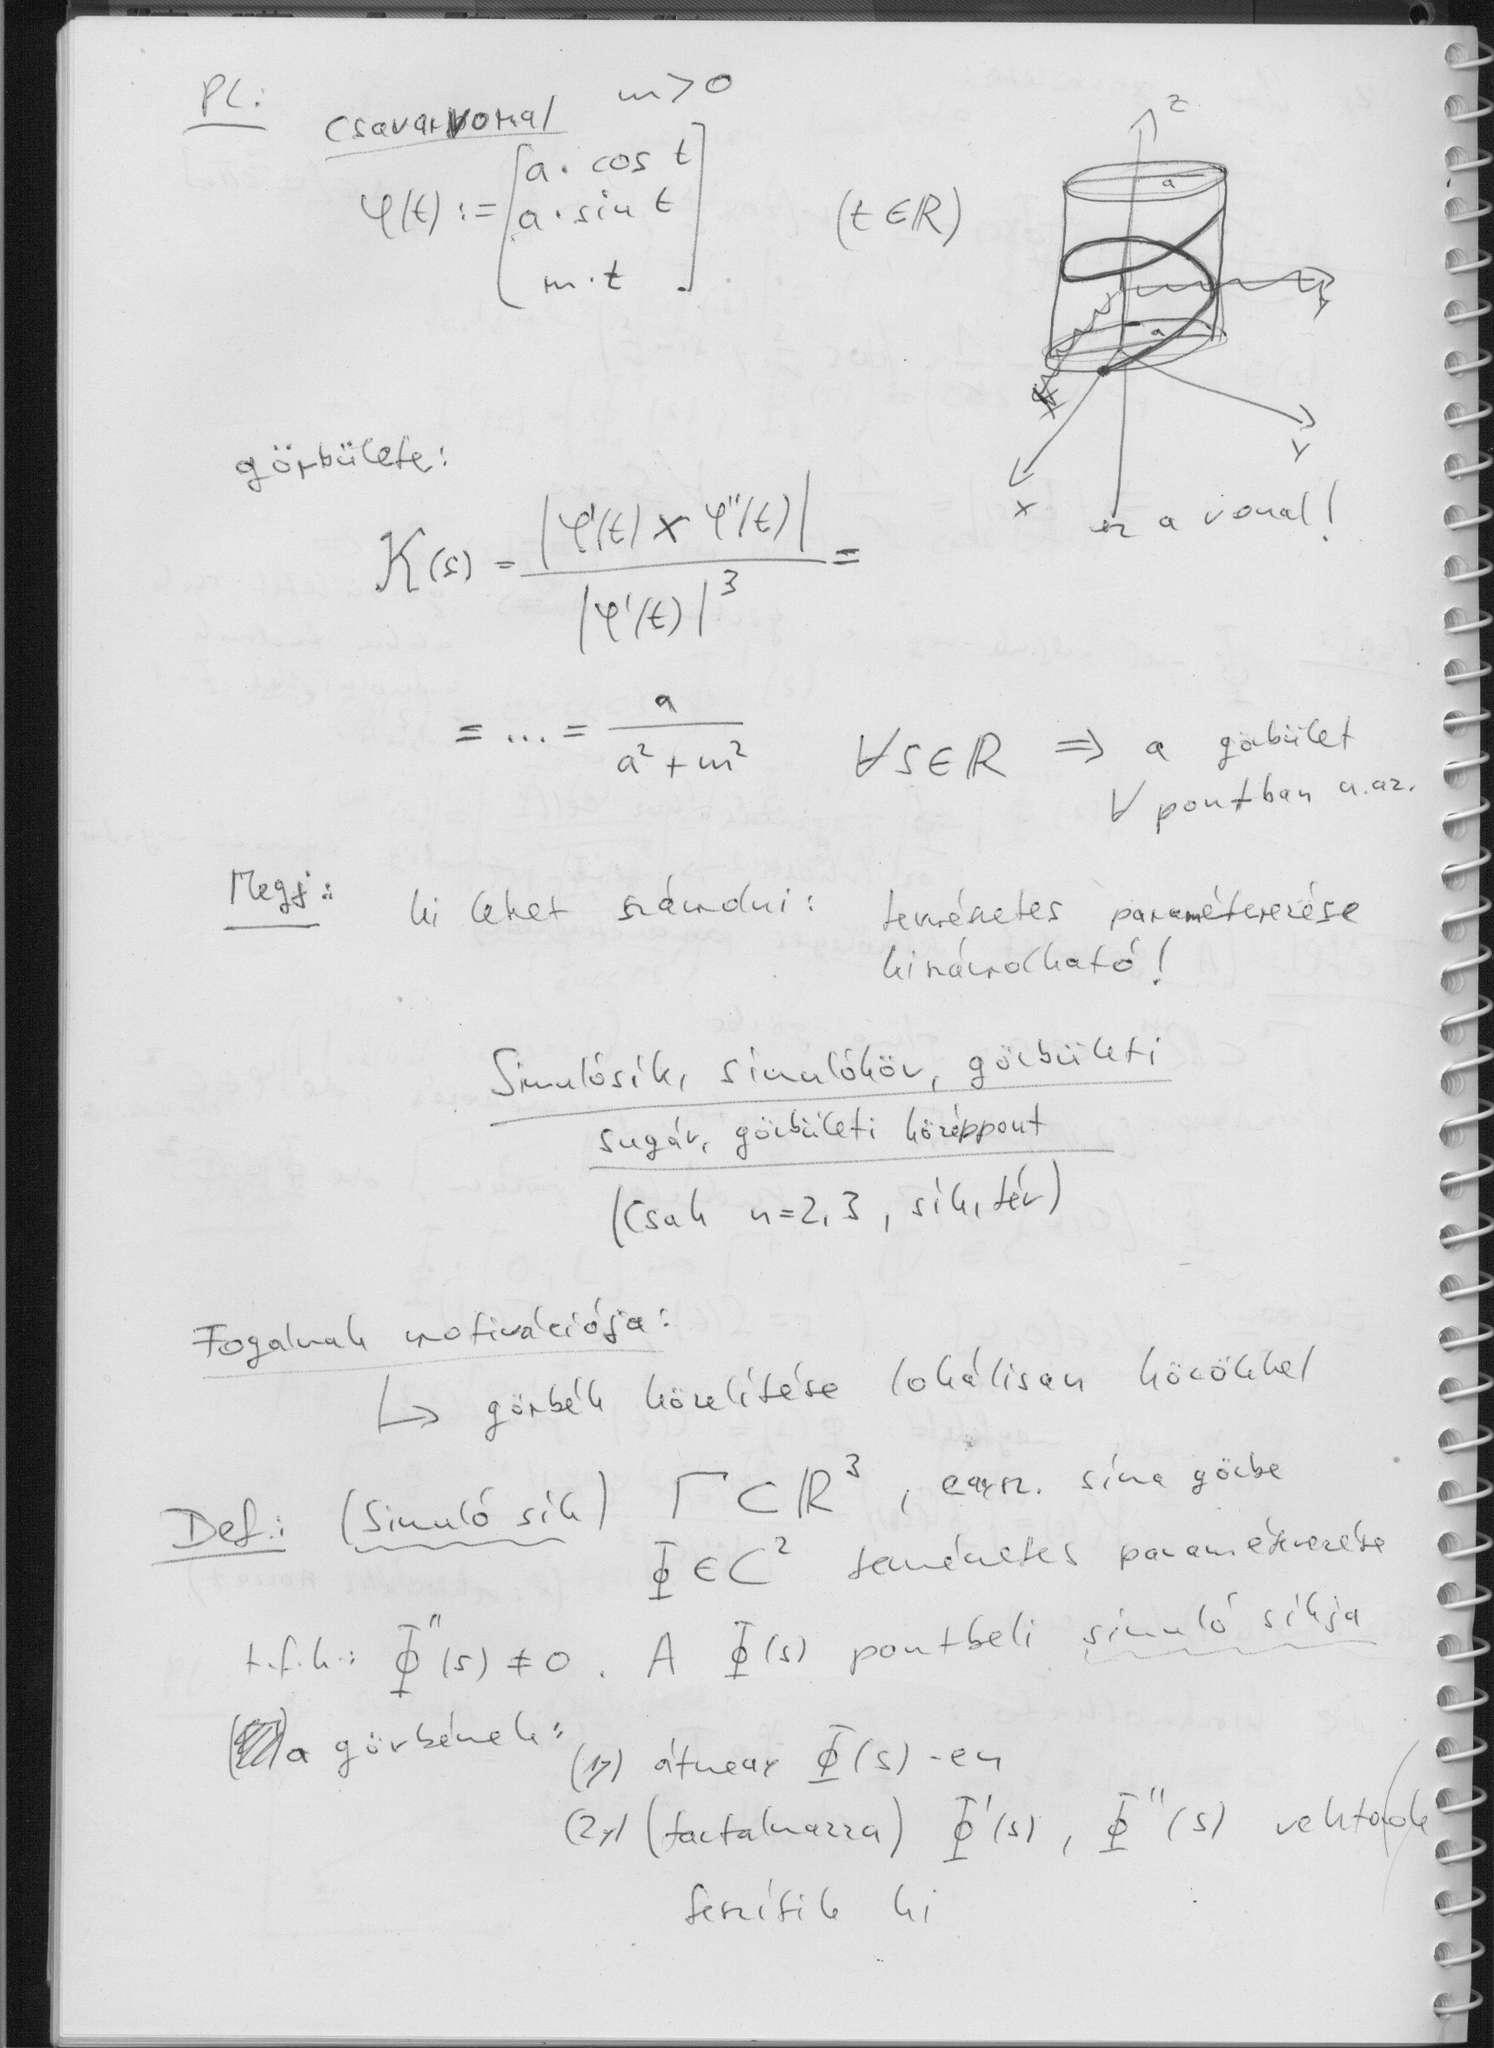 Pl.:
csavarvonal m>0
φ(t) := [a·cos t
a·sin t
m·t] (t∈ℝ)
z
a
a
y
x
ez a vonal!
görbülete:
K(s) = |φ'(t) × φ''(t)| / |φ'(t)|³ =
= ... = a / (a²+m²) ∀s∈ℝ ⇒ a görbület
∀ pontban u.az.
Megj.: ki lehet számolni: természetes paraméterezése
kiszámolható!
Simulósík, simulókör, görbületi
sugár, görbületi középpont
(Csak n=2,3, sík, tér)
Fogalmak motivációja:
↳ görbék közelítése lokálisan körökkel
Def.: (Simuló sík) Γ⊂ℝ³, egysz. sima görbe
Φ∈C² természetes paraméterezése
t.f.h.: Φ''(s)≠0. A Φ(s) pontbeli simuló síkja
a görbének:
(1) átmegy Φ(s)-en
(2) (tartalmazza) Φ'(s), Φ''(s) vektorok
feszítik ki